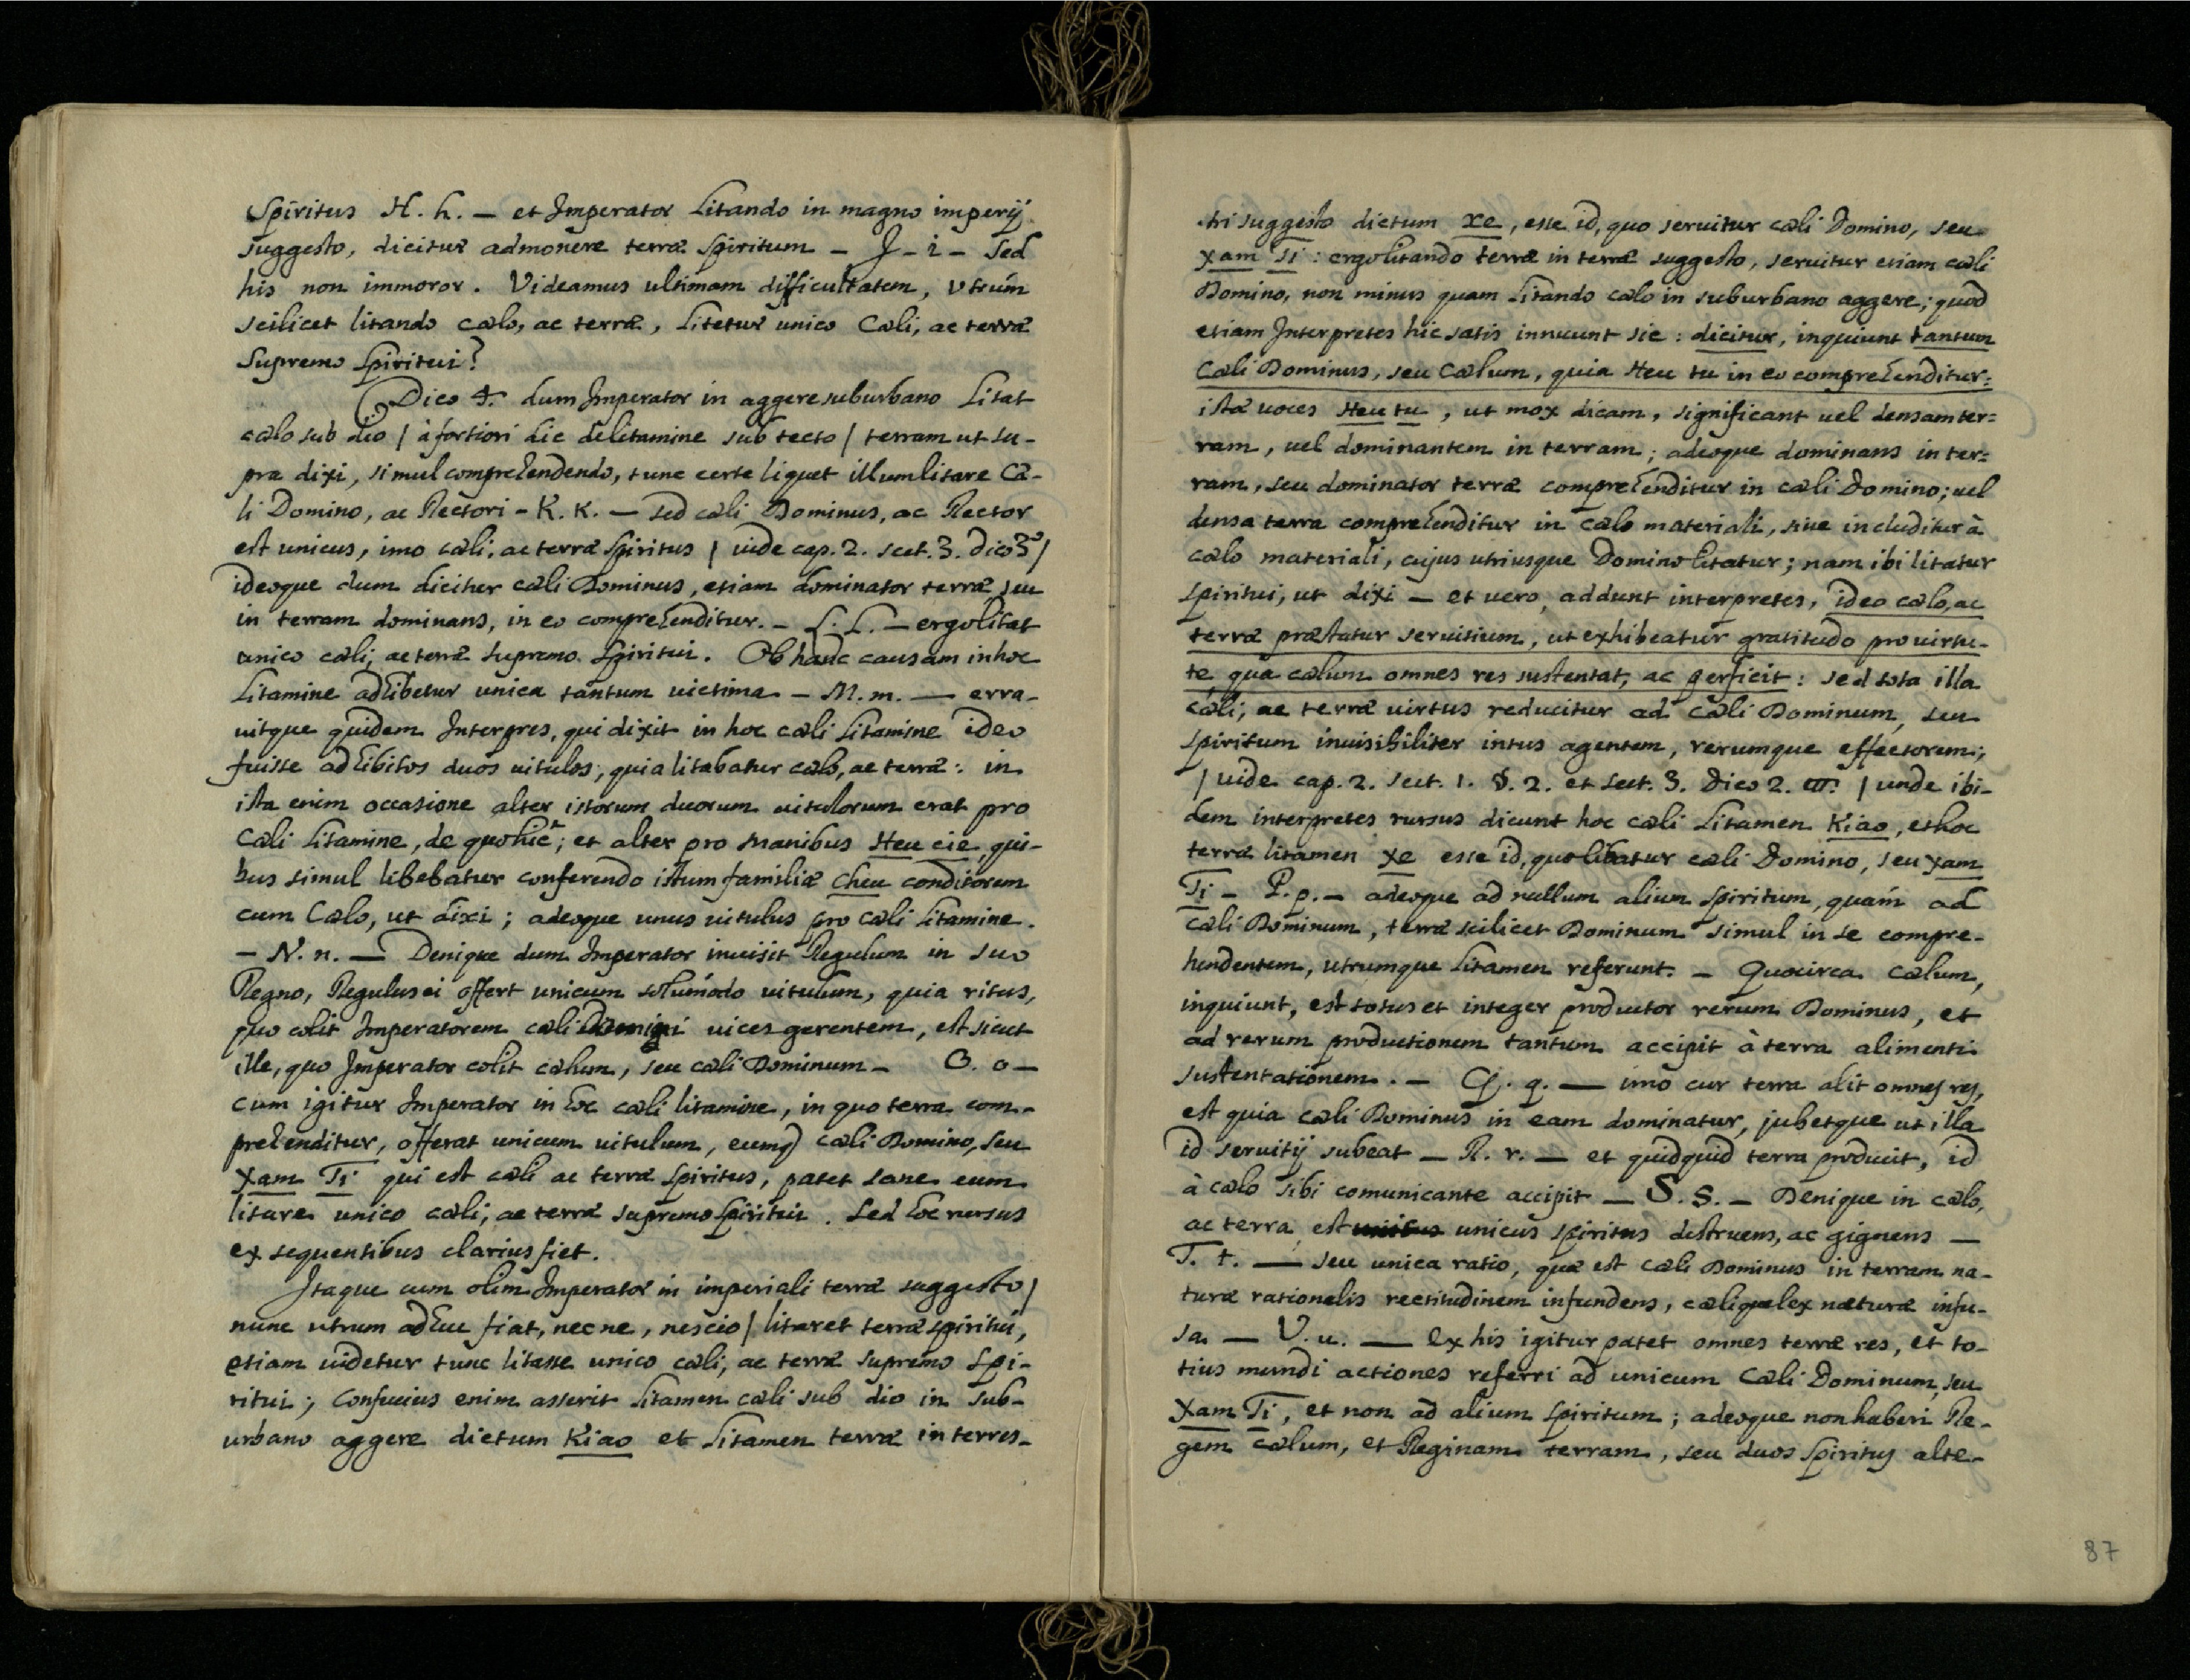 Spiritus H. h. — et Imperator Litando in magno imperij
suggesto, dicitur admonere terræ spiritum — J - i — Sed
his non immoror. Videamus ultimam difficultatem, utrum
scilicet litando cælo, ac terræ, Litetur unico Cæli, ac terræ
Supremo Spiritui?
Dico 4. dum Imperator in aggere suburbano Litat
cælo sub dio / à fortiori dic de litamine sub tecto / terram ut su-
pra dixi, simul comprehendendo, tunc certe liquet illum litare Cæ-
li Domino, ac Rectori - K. K. — sed cæli Dominus, ac Rector
est unicus, imo cæli, ac terræ Spiritus / vide cap. 2. sect. 3. dico 3º /
ideoque dum dicitur cæli Dominus, etiam dominator terræ seu
in terram dominans, in eo comprehenditur. - L. L. — ergo litat
unico cæli, ac terræ supremo Spiritui. Ob hanc causam in hoc
Litamine adhibetur unica tantum victima — M. m. — erra-
vitque quidem Interpres, qui dixit in hoc cæli Litamine ideo
fuisse adhibitos duos vitulos, quia litabatur cælo, ac terræ: in
ista enim occasione alter istorum duorum vitulorum erat pro
Cæli Litamine, de quo hic; et alter pro Manibus Heu cie, qui-
bus simul libebatur conferendo istum familiæ Cheu conditorem
cum Cælo, ut dixi; adeoque unus vitulus pro cæli Litamine.
— N. n. — Denique dum Imperator invisit Regulum in suo
Regno, Regulus ei offert unicum solumodo vitulum, quia ritus,
quo colit Imperatorem cæli Domini vices gerentem, est sicut
ille, quo Imperator colit cælum, seu cæli Dominum — O. o —
cum igitur Imperator in hoc cæli litamine, in quo terra com-
prehenditur, offerat unicum vitulum, eumq cæli Domino, seu
Xam Ti qui est cæli ac terræ Spiritus, patet sane eum
litare unico cæli, ac terræ supremo Spiritui. Sed hoc rursus
ex sequentibus clarius fiet.
Itaque cum olim Imperator in imperiali terræ suggesto /
nunc utrum adhuc fiat, nec ne, nescio / litaret terræ spiritui,
etiam videtur tunc litasse unico cæli, ac terræ supremo Spi-
ritui; Confucius enim asserit Litamen cæli sub dio in sub-
urbano aggere dictum Kiao et Litamen terræ in terres-
tri suggesto dictum xe, esse id, quo servitur cæli Domino, seu
Xam Ti: ergo litando terræ in terræ suggesto, servitur etiam cæli
Domino, non minus quam Litando cælo in suburbano aggere; quod
etiam Interpretes hic satis innuunt sic: dicitur, inquiunt tantum
Cæli Dominus, seu Cælum, quia Heu tu in eo comprehenditur:
istæ voces Heu tu, ut mox dicam, significant vel densam ter=
ram, vel dominantem in terram; adeoque dominans in ter=
ram, seu dominator terræ comprehenditur in cæli Domino; vel
densa terra comprehenditur in cælo materiali, sive includitur à
cælo materiali, cujus utriusque Domino litatur; nam ibi litatur
Spiritui, ut dixi — et vero, addunt interpretes, ideo cælo, ac
terræ præstatur servitium, ut exhibeatur gratitudo pro virtu-
te, qua cælum omnes res sustentat, ac perficit: sed tota illa
cæli, ac terræ virtus reducitur ad cæli Dominum, seu
Spiritum invisibiliter intus agentem, rerumque effectorem;
/ vide cap. 2. sect. 1. §. 2. et sect. 3. Dico 2. / unde ibi-
dem interpretes rursus dicunt hoc cæli Litamen Kiao, et hoc
terræ litamen xe esse id, quo libatur cæli Domino, seu Xam
Ti — P. p. — adeoque ad nullum alium Spiritum, quam ad
cæli Dominum, terræ scilicet Dominum simul in se compre-
hendentem, utrumque Litamen referunt. — Quocirca cælum,
inquiunt, est totus et integer productor rerum Dominus, et
ad rerum productionem tantum accipit à terra alimenti
sustentationem. — Q. q. — imo cur terra alit omnes res,
est quia cæli Dominus in eam dominatur, jubetque ut illa
id servitij subeat — R. r. — et quidquid terra producit, id
à cælo sibi comunicante accipit — S. s. — Denique in cælo,
ac terra, est unicus spiritus destruens, ac gignens —
T. t. — seu unica ratio, quæ est cæli Dominus in terram na-
turæ rationalis rectitudinem infundens, cælique lex naturæ infu-
sa — V. u. — Ex his igitur patet omnes terræ res, et to-
tius mundi actiones referri ad unicum Cæli Dominum, seu
Xam Ti, et non ad alium Spiritum; adeoque non haberi Re-
gem cælum, et Reginam terram, seu duos Spiritus alte-
87